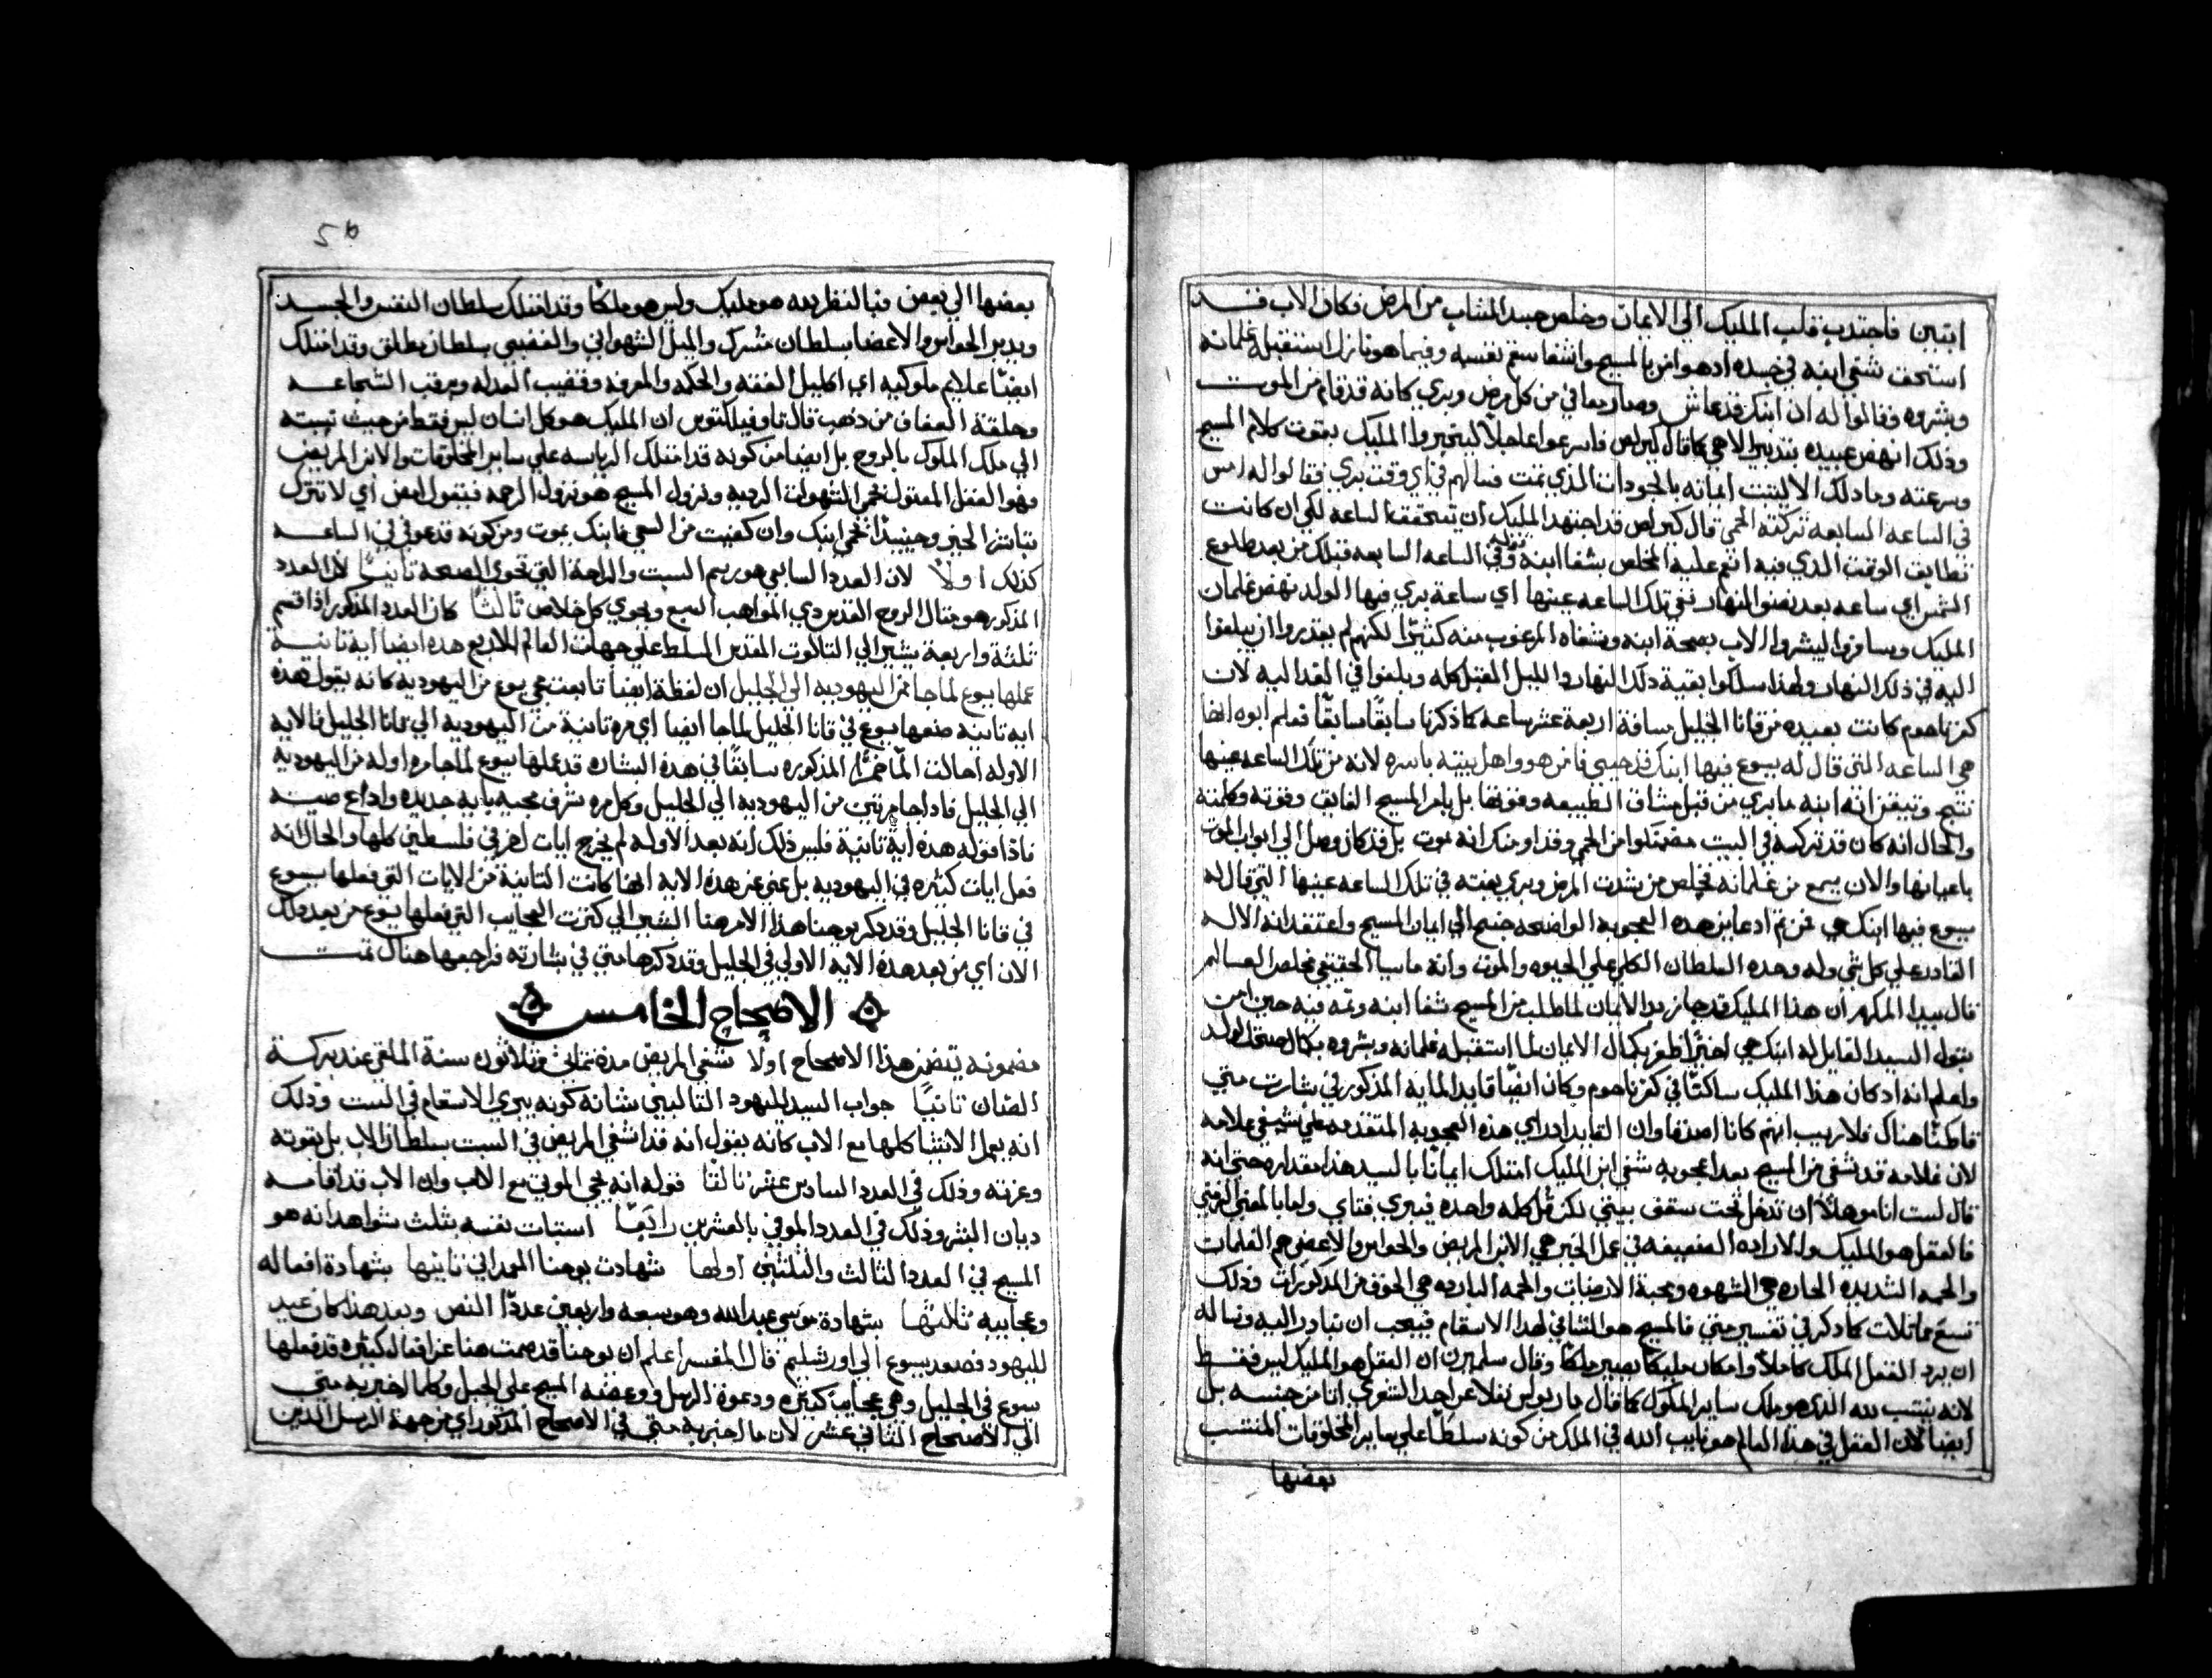 اثنين فاجتدب قلب المليك الى الايمان وخلص جسد الشاب من المرض فكان الاب قد
استحق شفي ابنه في جسده اد هو امن بالمسيح وانشفا سقم نفسه وفيما هو نازل استقبله غلمانه
وبشروه وقالوا له ان ابنك قد عاش وصار معافي من كل مرض وبري كانه قد قام من الموت
وذلك انهض عبيده بتدبير الاهي كما قال كيرلص فاسرعوا عاجلاً ليخبروا المليك بقوت كلام المسيح
وسرعته وما دلك الا ليتبت ايمانه بالجودات الذي تمت فسالهم في اي وقت بري فقالوا له امس
في الساعه السابعه تركته الحمى قال كيرلص قد اجتهد المليك ان يتحقق الساعه لكي ان كانت
تطابق الوقت الدي فيه انعم عليه المخلص بشفا ابنه قوله في الساعه السابعه فتلك من بعد طلوع
الشمس اي ساعه بعد نصف النهار ففي تلك الساعه عينها اي ساعة بري فيها الولد نهض غلمان
المليك وسافروا ليبشروا الاب بصحة ابنه وشفاه المرغوب منه كثيرًا لكنهم لم يقدروا ان يبلغوا
اليه في ذلك النهار ولهذا سلكوا بقية دلك النهار والليل المقبل كله وبلغوا في الغد اليه لان
كفرناحوم كانت بعيده من قانا الجليل مسافة اربعة عشر ساعه كما ذكرنا سابقًا سابقًا فعلم ابوه انها
هي الساعه التى قال له يسوع فيها ابنك قد حيي فامن هو واهل بيته باسره لانه من تلك الساعه عينها
نتج وتيقن انه ابنه ما بري من قبل مشاق الطبيعه وقوتها بل بامر المسيح الفايق وقوته وكلمته
والحال انه كان قد تركه في البيت مضنكوا من الحمى وقد اوشك انه يموت بل قد كان وصل الي ابواب الموت
باعيانها والان يسمع من غلمانه تخلص من شدت المرض وبري بغته في تلك الساعه عينها التي قال له
يسوع فيها ابنك حي فمن تم اد عاين هذه العجوبه الواضحه جنح الي ايمان المسيح واعتقد انه الاله
القادر علي كل شي وله وحده السلطان الكلي علي الحيوه والموت وانه ماسيا الحقيقي مخلص العالم
قال بيدا المكرم ان هذا المليك قد حاز بدو الايمان لما طلب من المسيح شفا ابنه وتمه فيه حين امن
بقوله السيد القايل له ابنك حي اخيرًا ظفر بكمال الايمان لما استقبله غلمانه وبشروه بكمال صحة الولد
واعلم انه اد كان هذا المليك ساكنًا في كفرناحوم وكان ايضًا قايد المايه المذكور في بشارت متي
قاطنًا هناك فلا ريب انهم كانا اصدقا وان القايد اد راي هذه العجوبه المتقدمه علي شفي غلامه
لان غلامه قد شفي من المسيح بعد اعجوبه شفي ابن المليك امتلك ايمانًا بالسيد هذا مقداره حتي انه
قال لست انا موهلاً ان تدخل تحت سقف بيتي لكن قل كله واحده فيبري فتاي واما بالمعني الرمزي
فالعقل هو المليك والاراده الضعيفه في عمل الخير هي الابن المريض والحواس والاعضي هم الغلمات
والحمه الشديده الحاره هي الشهوه ومحبة الارضيات والحمه البارده هي الخوف من المدكورات وذلك
تسع مماتلات كما دكر في تفسير متي فالمسيح هو الشافي لهذا الاسقام فيجب ان نبادر اليه ونساله
ان يرد العقل الملك كاملاً وامكان مليكًا يصير ملكًا وقال سلميرن ان العقل هو المليك ليس فقط
لانه ينتسب لله الذي هو ملك ساير الملوك كما قال مار بولس نقلا عن احد الشعري انا من جنسه بل
ايضًا لان العقل في هذا العالم هو نايب الله في الملك من كونه سلطًا علي ساير المخلوقات المنتسب
بعضها
بعضها الي بعض فبالنظر لله هو مليك وليس هو ملكًا وقد امتلك سلطان النفس والجسد
ويدبر الحواس والاعضا بسلطان مشترك والميل الشهواني والغضبي بسلطان مطلق وقد امتلك
ايضًا علايم ملوكيه اي اكليل الفقه والحكمه والمعرفه وقضيب العدل وبرقب الشجاعه
وحلقة العفاف من دهب قال تاوفيلكتوس ان المليك هو كل انسان ليس فقط من حيث نسبته
الي ملك الملوك بالروح بل ايضا من كونه قد امتلك الرياسه علي ساير المخلوقات والابن المريض
فهو العقل المعتول بحمى الشهوات الرديه ونزول المسيح هو نزول الرحمه فيقول امض اي لا تترك
تباتر الخير وحينيدًا تحي ابنك وان كفيت من السعي فابنك يموت ومن كونه قد عوفي في الساعه
كذلك اولاً لان العدد السابعي هو رسم السبت والراحة التي تحوي الصحه تانيًا لان العدد
المذكور هو متال الروح القدس دي المواهب السبع ويحوي كل خلاص تالتًا كان العدد المذكور اذا قسم
تلتة واربعة يشير الي التالوت المقدس المسلط علي جهات العالم الاربع هده ايضًا ايه تانية
عملها يسوع لما جا من اليهوديه الى الجليل ان لفظة ايضًا تابعت مجي يسوع من اليهوديه كانه يقول هذه
ايه تانيه صنعها يسوع في قانا الجليل لما جا ايضا اي مره تانية من اليهوديه الي قانا الجليل فالايه
الاوله احالت الما خمرًا المذكوره سابقًا في هذه البشاره قد عملها يسوع لما جا مره اوله من اليهوديه
الي الجليل فادا جا مرتين من اليهوديه الي الجليل وكل مره شرف مجيه بايه جديده واداع صيته
فاذا قوله هذه اية تانية فليس ذلك انه بعد الاوله لم يخرج ايات اخر في فلسطين كلها والحال انه
فعل ايات كتيره في اليهوديه بل عني عن هذه الايه انها كانت التانية من الايات التي فعلها يسوع
في قانا الجليل وقد دكر يوحنا هذا الامر هنا ليشير الي كترت العجايب التي فعلها يسوع من بعد دلك
الان اي من بعد هده الايه الاولي في الجليل وقد دكرها متي في بشارته فراجعها هناك تمت
الاصحاح الخامس
مضمونه يتضمن هذا الاصحاح اولًا شفي المريض مدة تماني وتلاتون سنة الملقي عند بركة
الضان تانيًا جواب السيد لليهود التالبين بشانه كونه يبري الاسقام في السبت وذلك
انه يعمل الاشيا كلها مع الاب كانه يقول انه قد اشفي المريض في السبت بسلطان الاب بل بقوته
وعزته وذلك في العدد السادس عشر تالتًا قوله انه يحي الموتى مع الاب وان الاب قد اقامه
ديان البشر وذلك في العدد الموفي بالعشرين رابعًا استبات نفسه بتلت شواهد انه هو
المسيح في العدد التالت والتلتين اولها شهادت يوحنا المعمداني تانيها بشهادة افعاله
وعجايبه تالتها بشهادة موسي عبد الله وهو سبعه واربعين عددًا النص وبعد هذا كان عيد
لليهود فصعد يسوع الي اورشليم قال المفسر اعلم ان يوحنا قد صمت هنا عن افعال كتيره قد فعلها
يسوع في الجليل وهي عجايب كتيره ودعوة الرسل ووعضه المسيح علي الجبل وكلما اخبر به متي
الي الاصحاح التاني عشر لان ما اخبر به متي في الاصحاح المذكور اي من جهة الرسل الدين